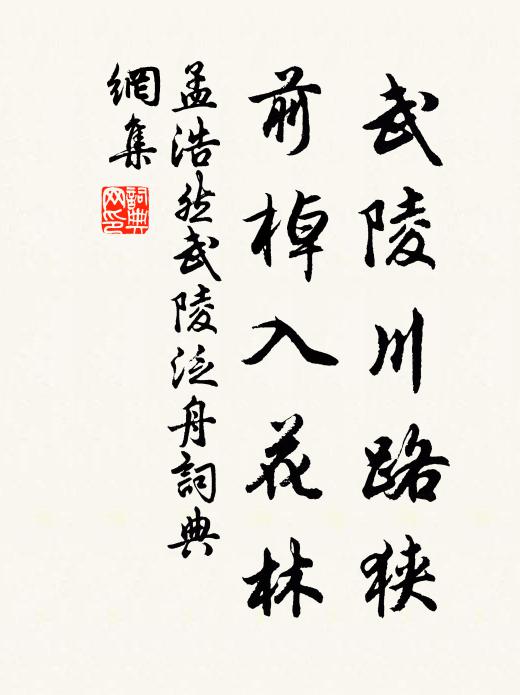 武陵川路狹
前棹入花林
孟浩然武陵泛舟詞典
網集
詞典
网印